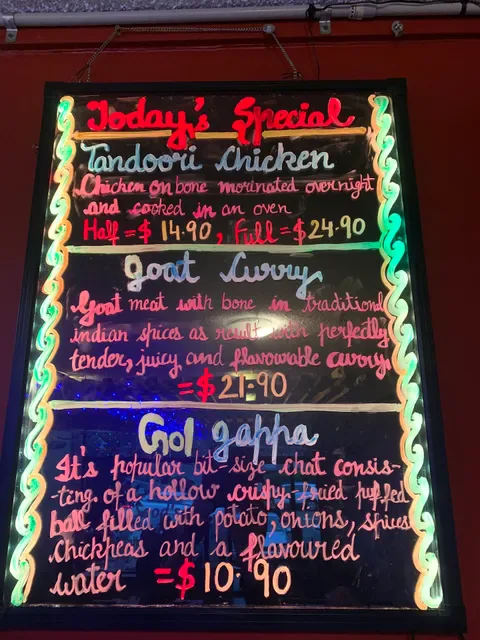 Today's Special
Tandoori Chicken
Chicken on bone morinated overnight
and cooked in an oven
Half = $ 14.90, Full = $24.90
goat Curry
Goat meat with bone in traditional
indian spices as result with perfectly
tender, juicy and flavourable curry,
= $21.90
Gol gappa
It's popular bit-size chat consis-
-ting of a hollow crispy-fried puffed
ball filled with potato, onions, spices
Chickpeas and a flavoured
water = $10.90